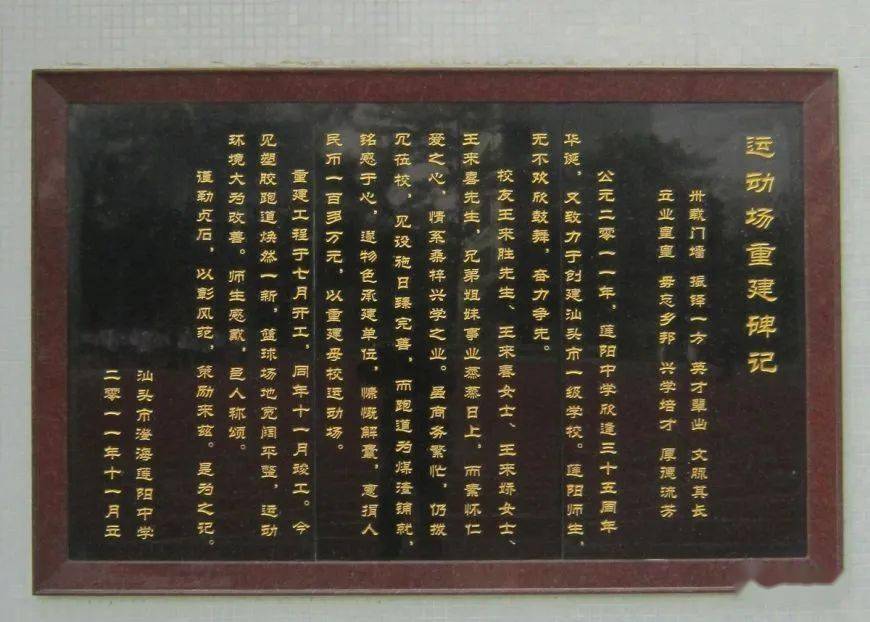 运动场重建碑记
卅载门墙 振铎一方 英才辈出 文脉其长
立业皇皇 毋忘乡邦 兴学培才 厚德流芳
公元二零一一年，莲阳中学欣逢三十五周年
华诞，又致力于创建汕头市一级学校。莲阳师生，
无不欢欣鼓舞，奋力争先。
校友王来胜先生、王来春女士、王来娇女士、
王来喜先生，兄弟姐妹事业蒸蒸日上，而素怀仁
爱之心，情系桑梓兴学之业。虽商务繁忙，仍拨
冗莅校，见设施日臻完善，而跑道为煤渣铺就，
铭感于心，遂物色承建单位，慷慨解囊，惠捐人
民币一百多万元，以重建母校运动场。
重建工程于七月开工，同年十一月竣工。今
见塑胶跑道焕然一新，篮球场地宽阔平整，运动
环境大为改善。师生感戴，邑人称颂。
谨勒贞石，以彰风范，策励来兹。是为之记。
汕头市澄海莲阳中学
二零一一年十一月立